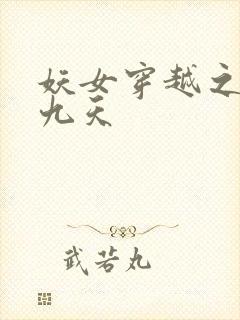 妖女穿越之
九天
武芸丸